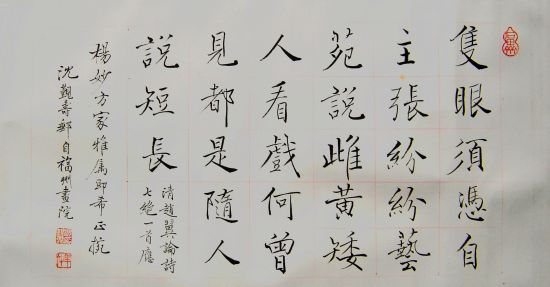 隻眼須憑自
主張紛紛藝
苑説雌黄矮
人看戲何曾
見都是隨人
說短長
清趙翼論詩
七絶一首應
楊妙方家雅属即希正捥
沈覲壽郵自福州畫院